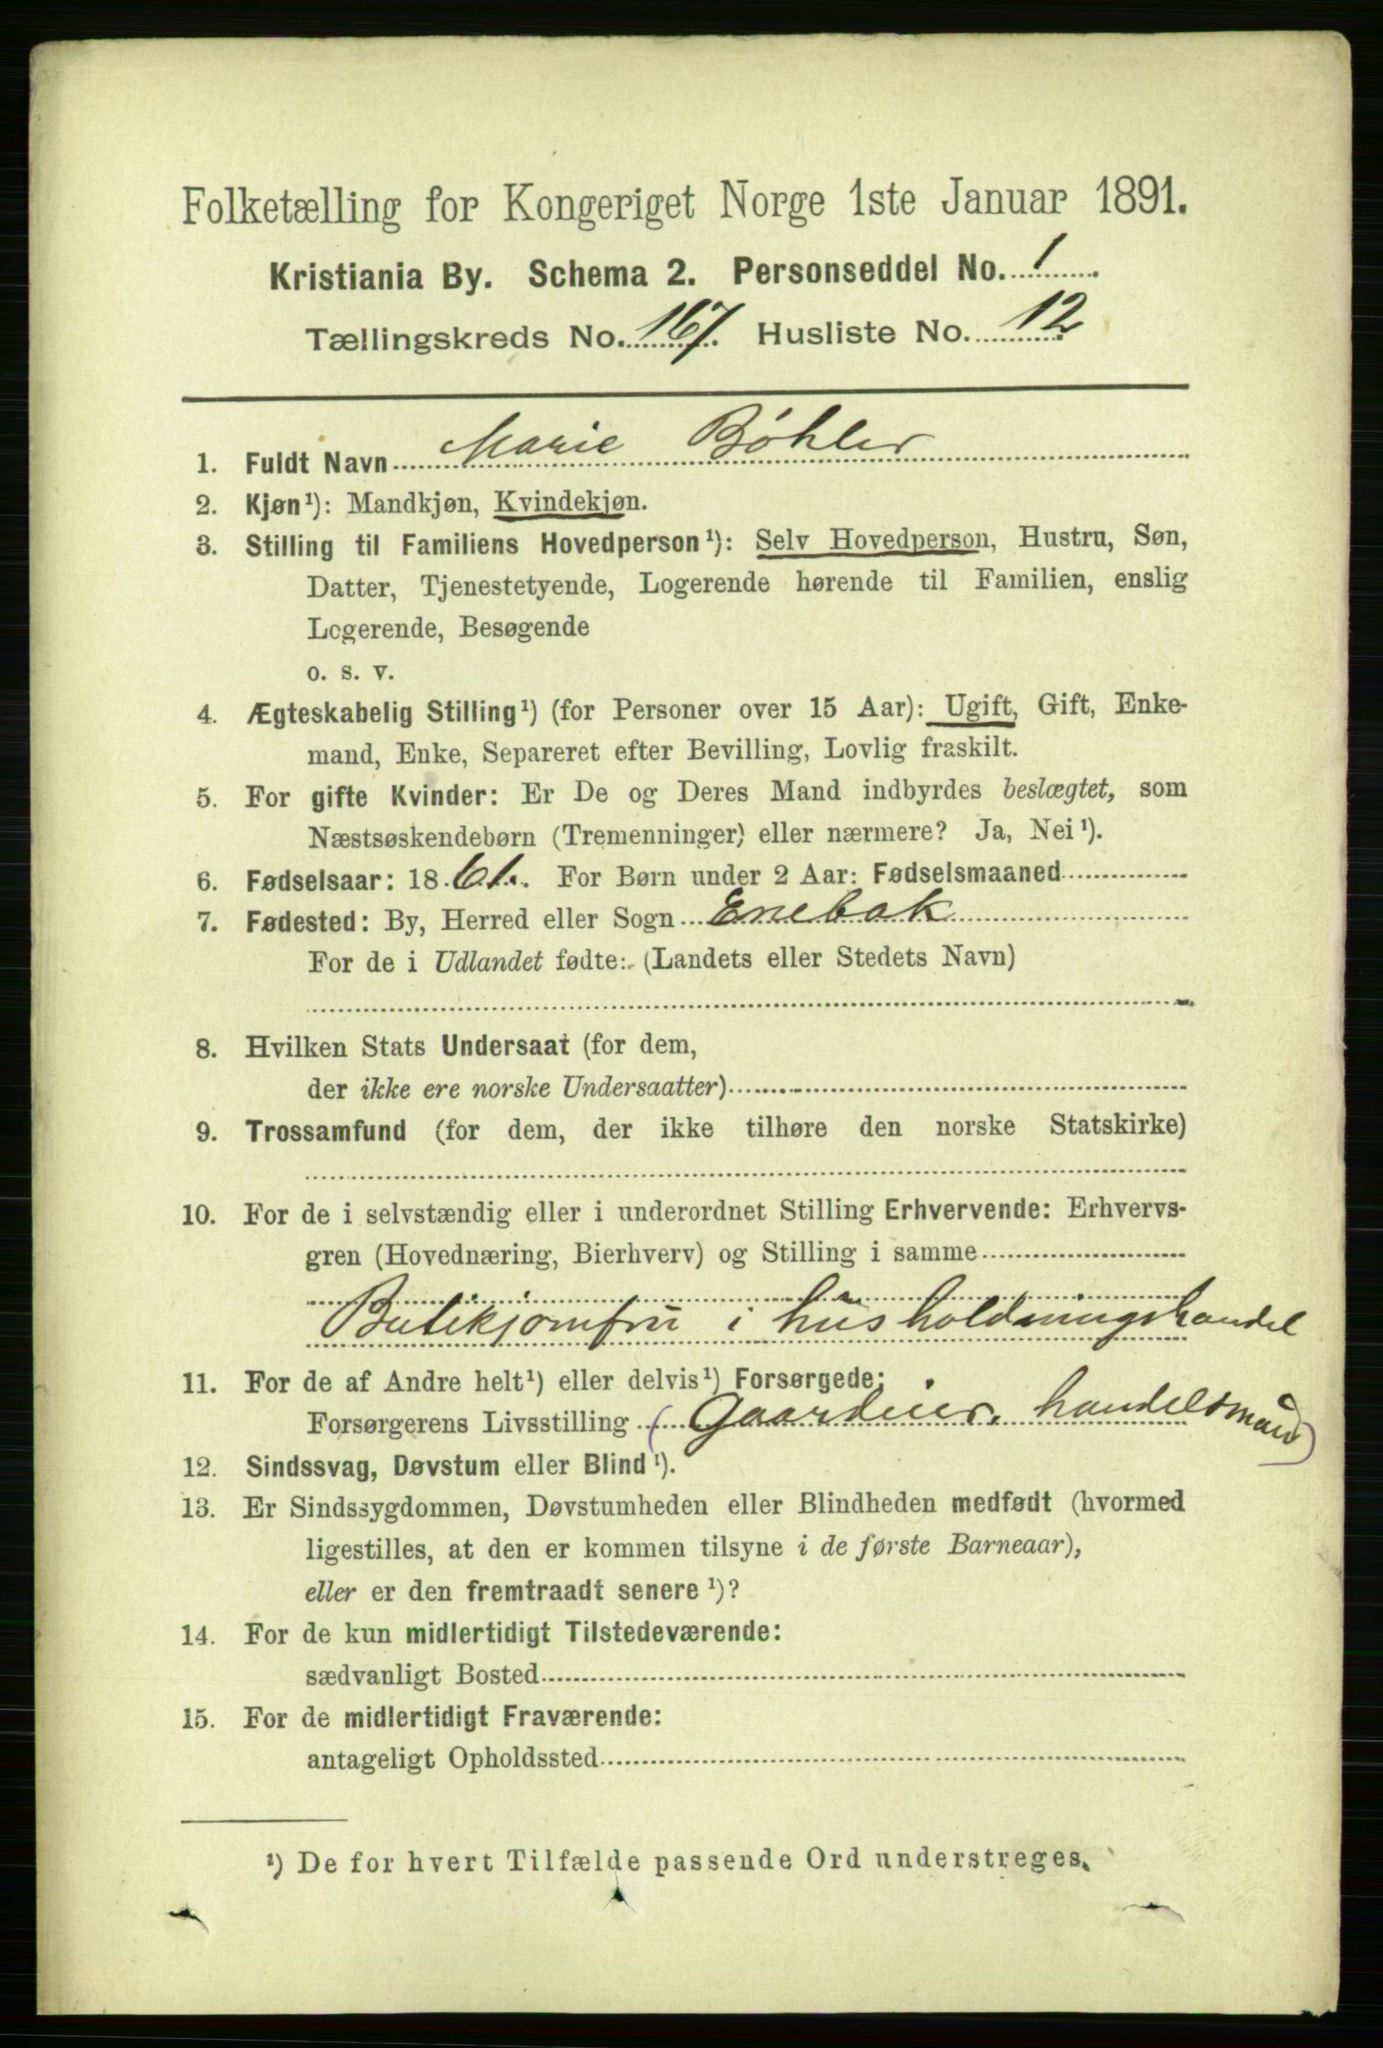 Folketælling for Kongeriget Norge 1ste Januar 1891.
Kristiania By. Schema 2. Personseddel No. 1
Tællingskreds No. 167. Husliste No. 12
1. Fuldt Navn Marie Bøhler
2. Kjøn¹): Mandkjøn, Kvindekjøn.
3. Stilling til Familiens Hovedperson¹): Selv Hovedperson, Hustru, Søn,
Datter, Tjenestetyende, Logerende hørende til Familien, enslig
Logerende, Besøgende
o. s. v.
4. Ægteskabelig Stilling¹) (for Personer over 15 Aar): Ugift, Gift, Enke-
mand, Enke, Separeret efter Bevilling, Lovlig fraskilt.
5. For gifte Kvinder: Er De og Deres Mand indbyrdes beslægtet, som
Næstsøskendebørn (Tremenninger) eller nærmere? Ja, Nei¹).
6. Fødselsaar: 1861. For Børn under 2 Aar: Fødselsmaaned
7. Fødested: By, Herred eller Sogn Enebak
For de i Udlandet fødte: (Landets eller Stedets Navn)
8. Hvilken Stats Undersaat (for dem,
der ikke ere norske Undersaatter)
9. Trossamfund (for dem, der ikke tilhøre den norske Statskirke)
10. For de i selvstændig eller i underordnet Stilling Erhvervende: Erhvervs-
gren (Hovednæring, Bierhverv) og Stilling i samme
Butikjomfru i husholdningshandel
11. For de af Andre helt¹) eller delvis¹) Forsørgede:
Forsørgerens Livsstilling (Gaardeier. handelsmand)
12. Sindssvag, Døvstum eller Blind¹).
13. Er Sindssygdommen, Døvstumheden eller Blindheden medfødt (hvormed
ligestilles, at den er kommen tilsyne i de første Barneaar),
eller er den fremtraadt senere¹)?
14. For de kun midlertidigt Tilstedeværende:
sædvanligt Bosted
15. For de midlertidigt Fraværende:
antageligt Opholdssted
¹) De for hvert Tilfælde passende Ord understreges.